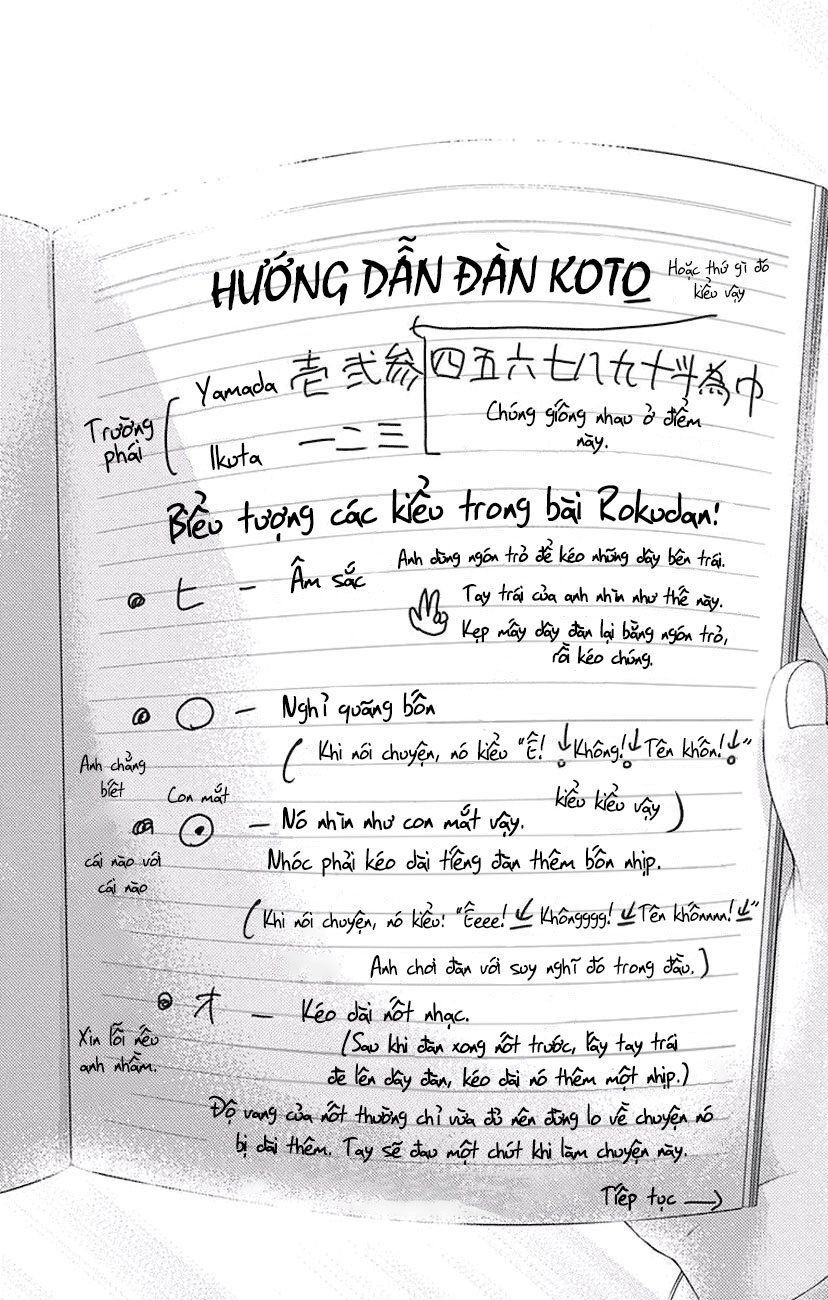 HƯỚNG DẪN ĐÀN KOTO
Hoặc thứ gì đó
kiểu vậy
Trường
phái
Yamada 壱 弐 参 四 五 六 七 八 九 十 斗 為 巾
Chúng giống nhau ở điểm
này.
Ikuta 一 二 三
Biểu tượng các kiểu trong bài Rokudan!
ヒ – Âm sắc
Anh dùng ngón trỏ để kéo những dây bên trái.
Tay trái của anh nhìn như thế này.
Kẹp mấy dây đàn lại bằng ngón trỏ,
rồi kéo chúng.
○ – Nghỉ quãng bốn
( Khi nói chuyện, nó kiểu "Ê! ↓ Không! ↓ Tên khốn! ↓"
kiểu kiểu vậy )
Anh chẳng
biết
cái nào với
cái nào
Con mắt
☉ – Nó nhìn như con mắt vậy.
Nhóc phải kéo dài tiếng đàn thêm bốn nhịp.
(Khi nói chuyện, nó kiểu: "Êeee! ↓ Khôngggg! ↓ Tên khônnnn! ↓"
Anh chơi đàn với suy nghĩ đó trong đầu.)
オ – Kéo dài nốt nhạc.
(Sau khi đàn xong nốt trước, lấy tay trái
đè lên dây đàn, kéo dài nó thêm một nhịp.)
Xin lỗi nếu
anh nhầm.
Độ vang của nốt thường chỉ vừa đủ nên đừng lo về chuyện nó
bị dài thêm. Tay sẽ đau một chút khi làm chuyện này.
Tiếp tục →